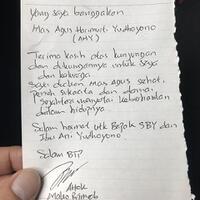 yang saya banggakan
Mas Agus Harimurti Yudhoyono
(AHY)
Terima kasih atas kunjungan
dan dukungannya untuk saya
dan keluarga
Saya doakan Mas Agus sehat,
penuh sukacita dan damai
sejahtera menyertai kehadiran
dalam hidupnya
Salam hormat utk Bapak SBY dan
Ibu Ani Yudhoyono
Salam BTP
Ahok
Mako Brimob